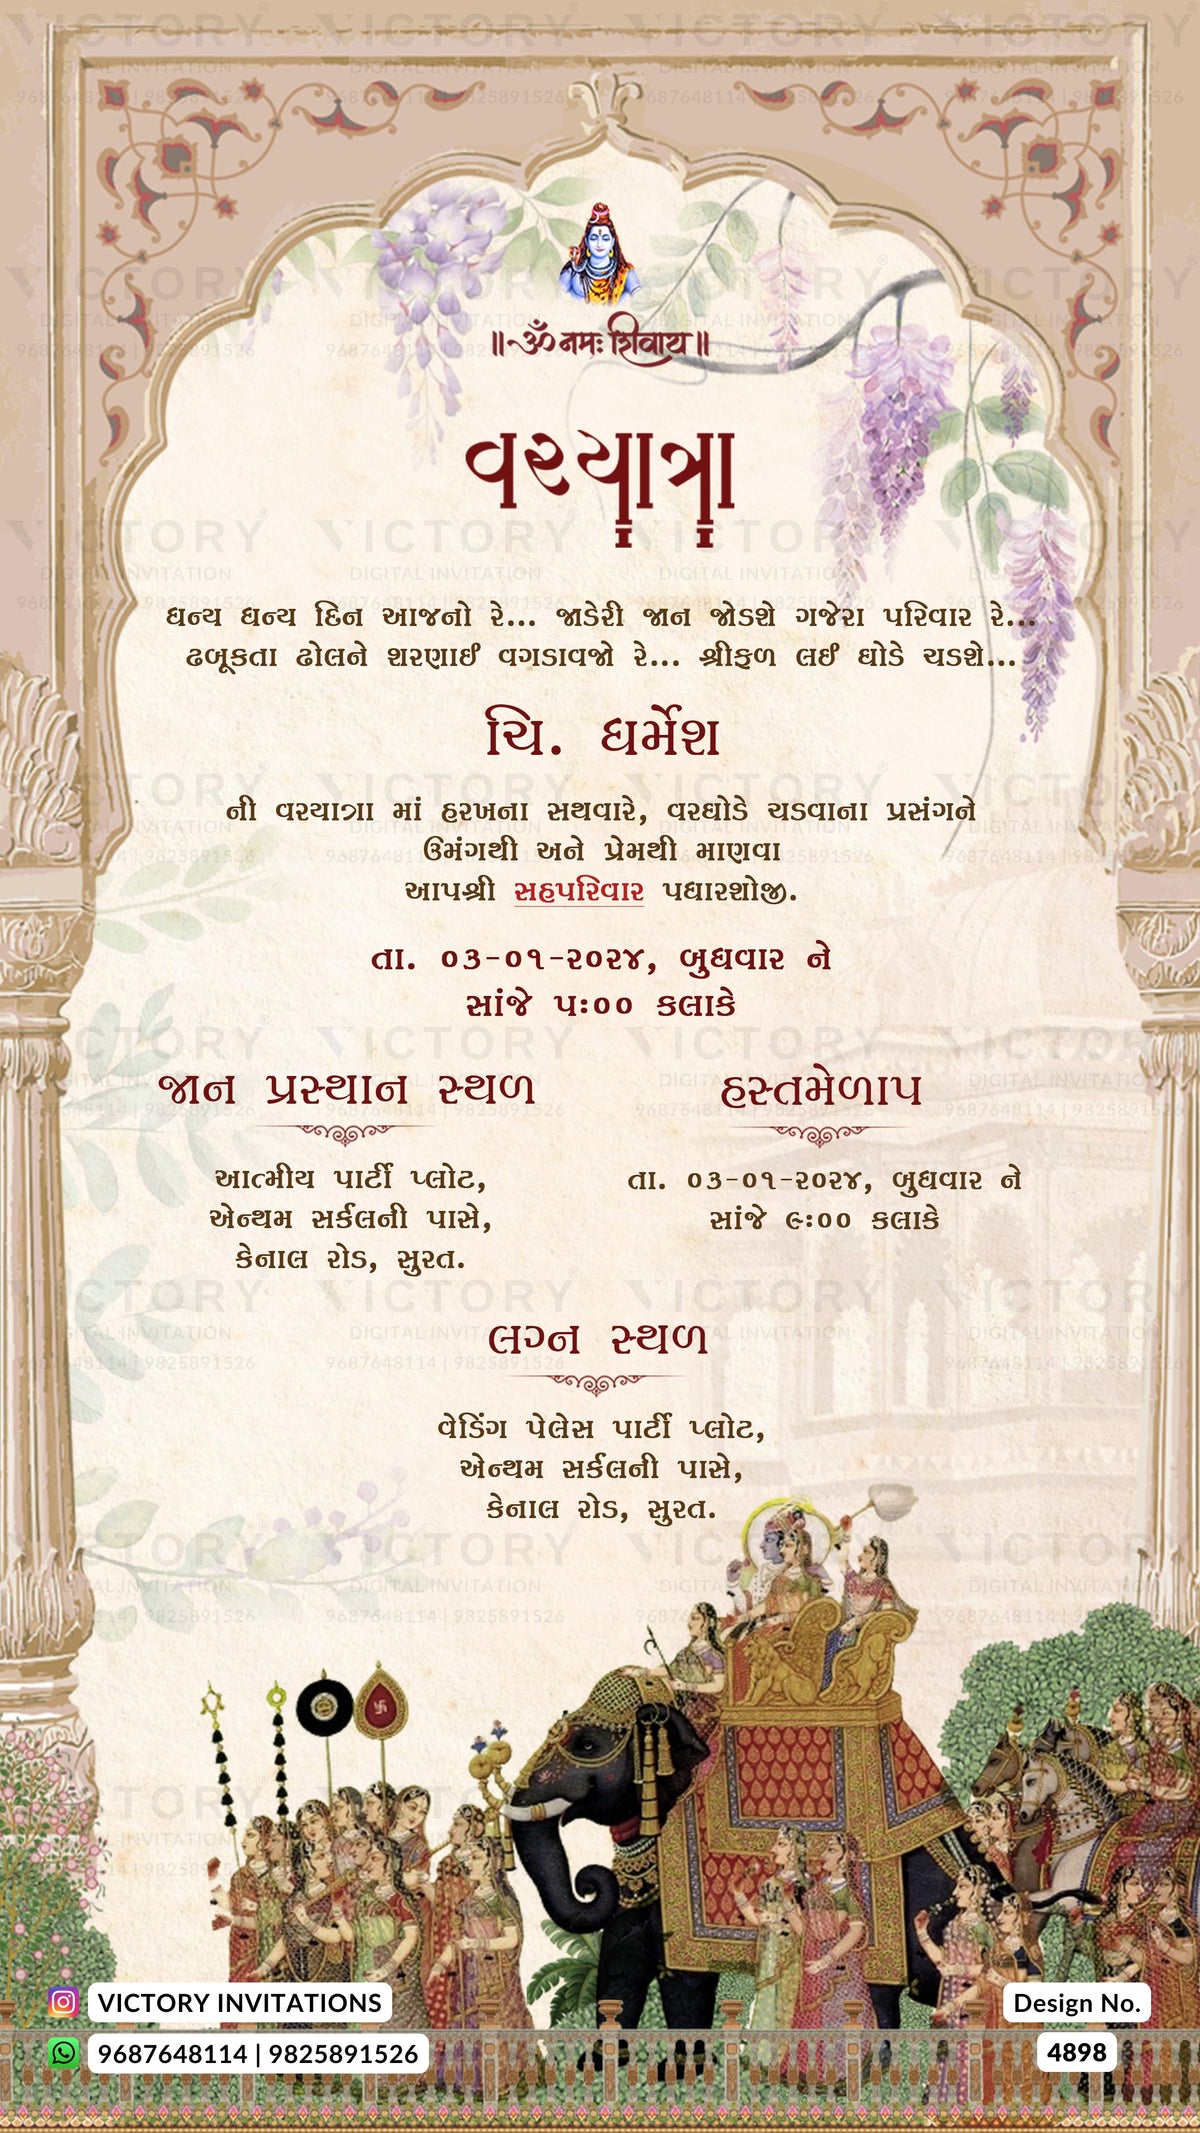 ॥ ॐ नमः शिवाय ॥
વરયાત્રા
ધન્ય ધન્ય દિન આજનો રે... જાડેરી જાન જોડશે ગજેરા પરિવાર રે...
ઢબૂકતા ઢોલને શરણાઈ વગડાવજો રે... શ્રીફળ લઈ ઘોડે ચડશે...
ચિ. ધર્મેશ
ની વરયાત્રા માં હરખના સથવારે, વરઘોડે ચડવાના પ્રસંગને
ઉમંગથી અને પ્રેમથી માણવા
આપશ્રી સહપરિવાર પધારશોજી.
તા. ૦૩-૦૧-૨૦૨૪, બુધવાર ને
સાંજે ૫:૦૦ કલાકે
જાન પ્રસ્થાન સ્થળ
આત્મીય પાર્ટી પ્લોટ,
એન્થમ સર્કલની પાસે,
કેનાલ રોડ, સુરત.
હસ્તમેળાપ
તા. ૦૩-૦૧-૨૦૨૪, બુધવાર ને
સાંજે ૯:૦૦ કલાકે
લગ્ન સ્થળ
વેડિંગ પેલેસ પાર્ટી પ્લોટ,
એન્થમ સર્કલની પાસે,
કેનાલ રોડ, સુરત.
VICTORY INVITATIONS
9687648114 | 9825891526
Design No.
4898
VICTORY
DIGITAL INVITATION
9687648114 | 9825891526